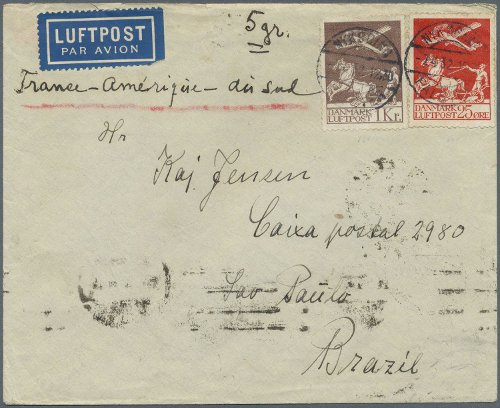 LUFTPOST
PAR AVION
5 gr.
France-Amérique-du sud
DANMARK
LUFTPOST 1 Kr.
DANMARK 25
LUFTPOST ØRE
Hr
Kaj Jensen
Caixa postal 2980
Sao Paulo
Brazil